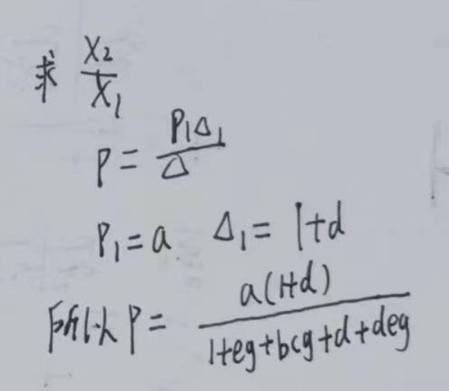 求 X₂/X₁
P = P₁Δ₁/Δ
P₁ = a Δ₁ = 1+d
所以 P = a(1+d)/(1+eg+bcg+d+deg)